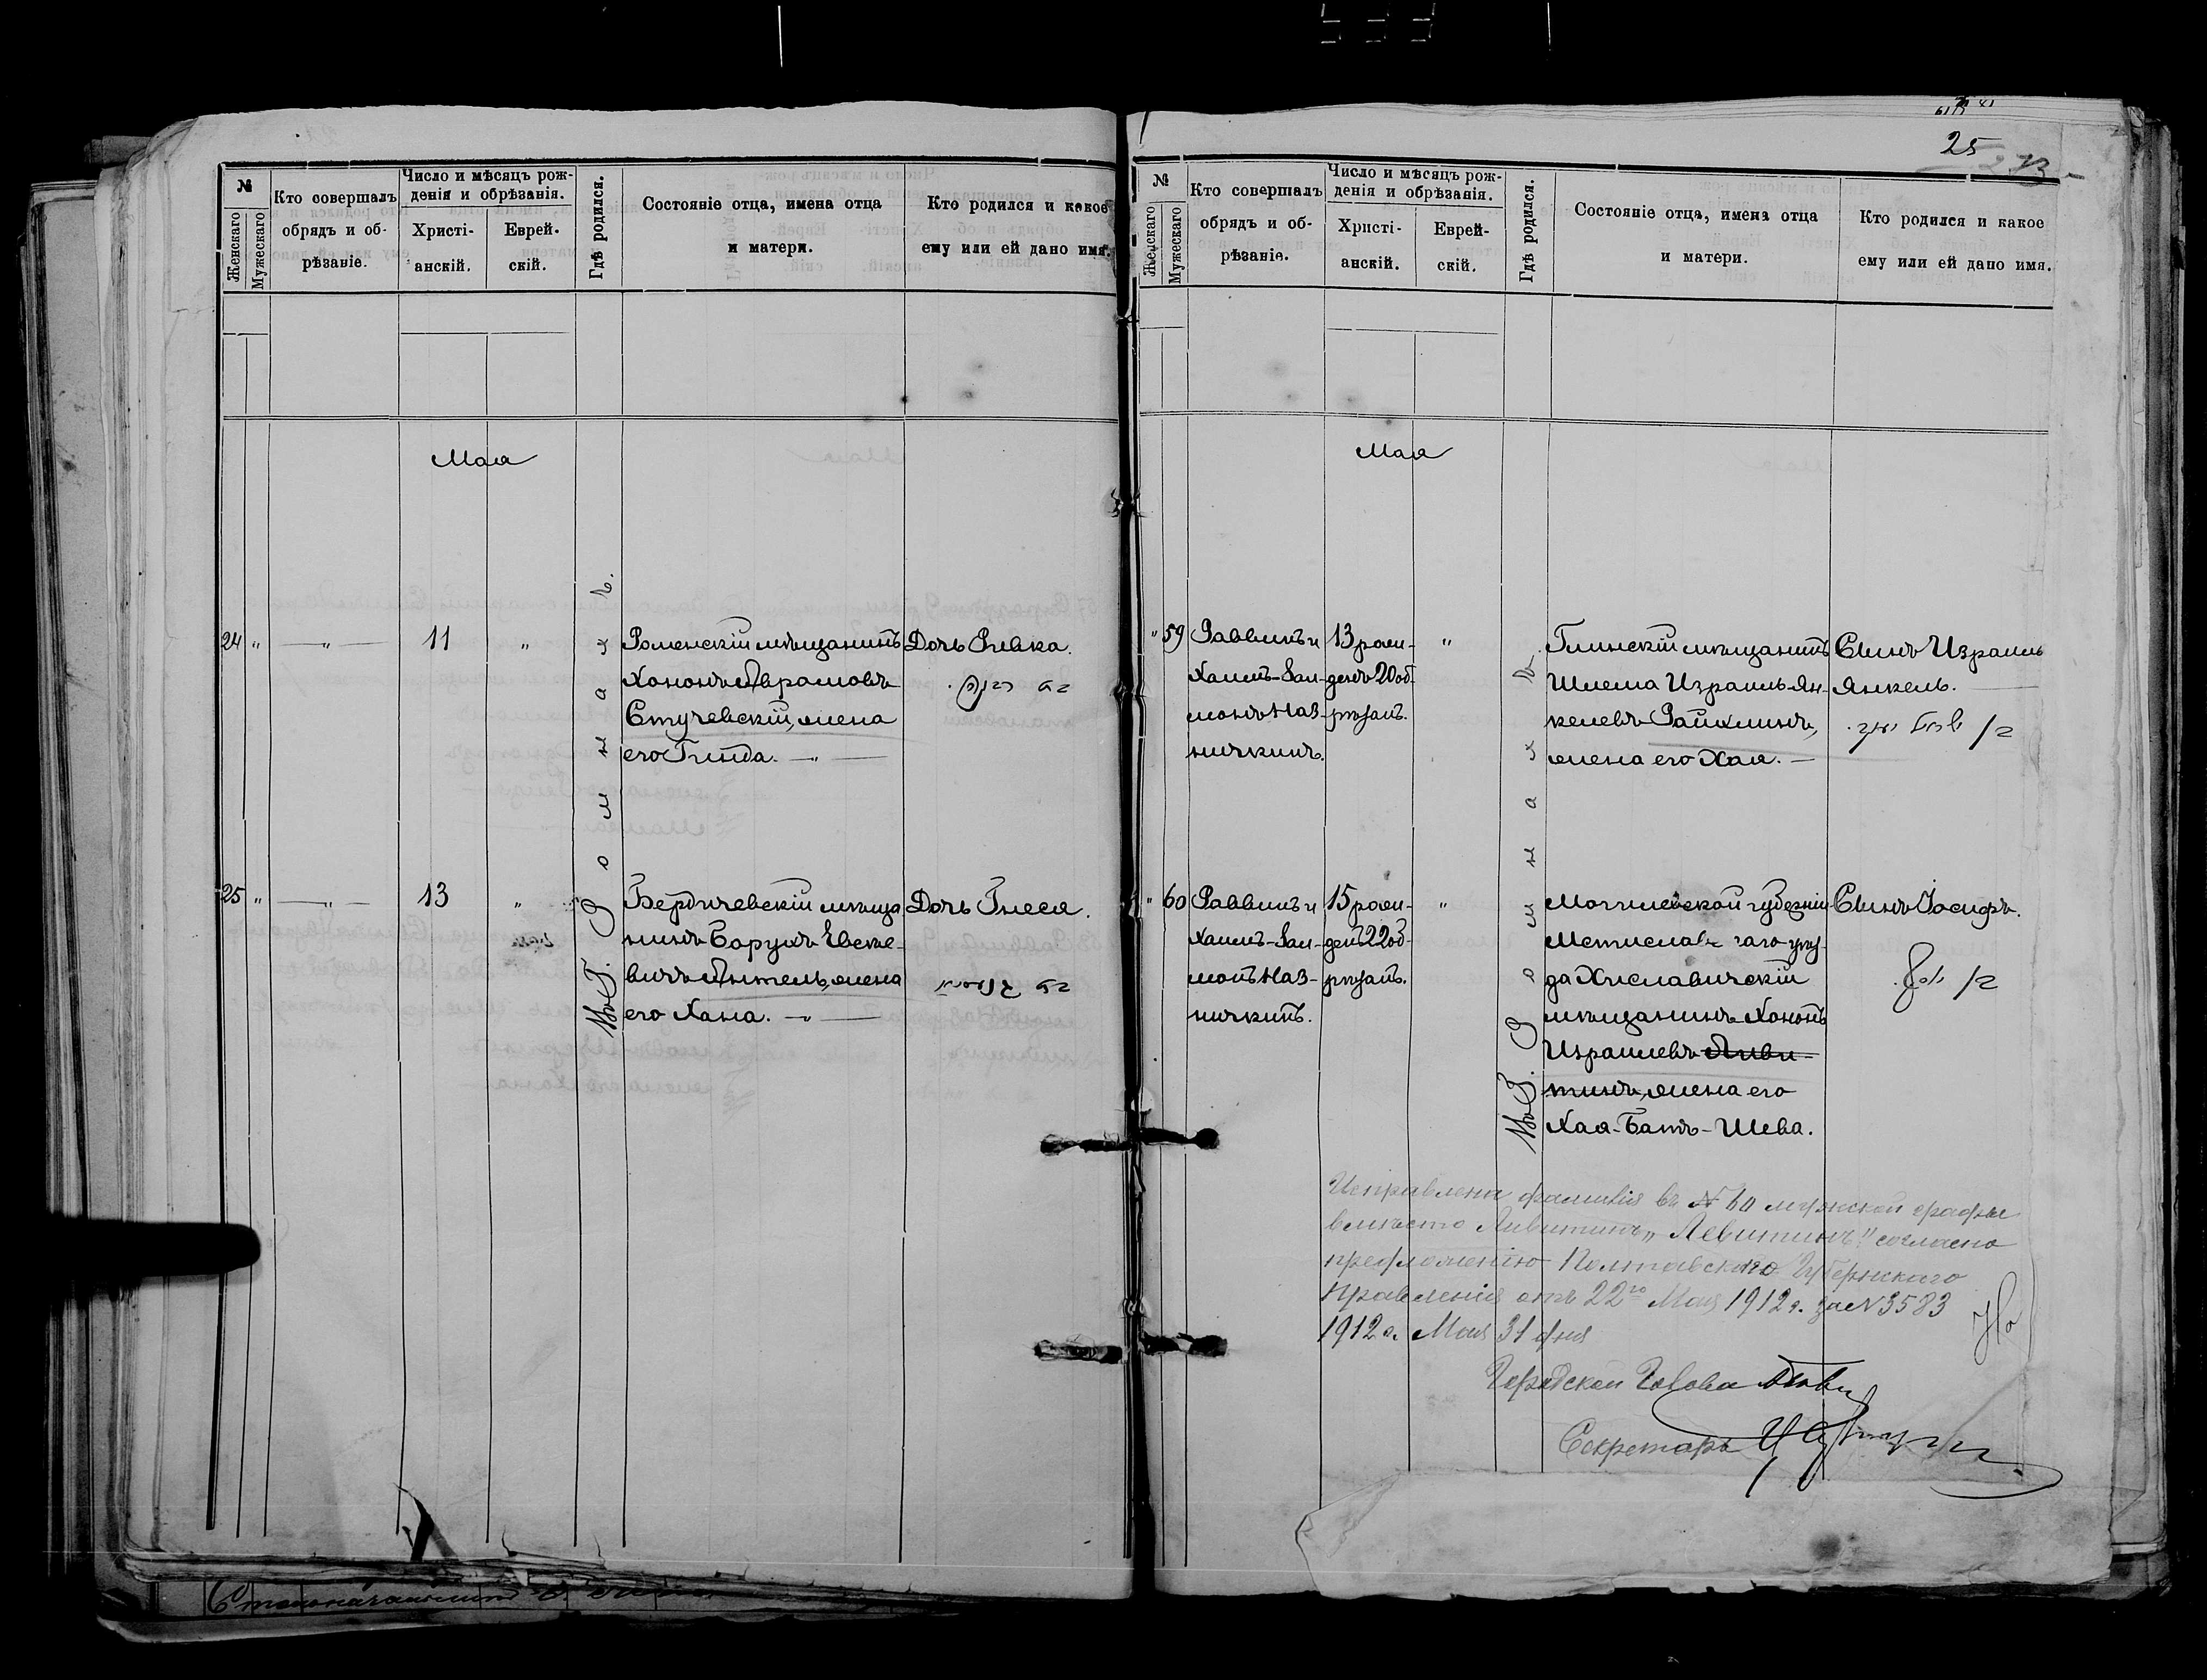 25
№
Женскаго
Мужескаго
Кто совершалъ
обрядъ и об-
рѣзаніе.
Число и мѣсяцъ рож-
денія и обрѣзанія.
Христі-
анскій.
Еврей-
скій.
Гдѣ родился.
Состояніе отца, имена отца
и матери.
Кто родился и какое
ему или ей дано имя.
Мая
Въ Г. Роменахъ.
24 „ — „ — 11 „
Роменскій мѣщанинъ
Хононъ Аврамовъ
Стучевскій, жена
его Гинда. — „ —
Дочь Ривка.
בת רבקה.
25 „ — „ — 13 „
Бердичевскій мѣща
нинъ Борухъ
вичъ жена
его Хана. — „ —
Дочь Гнеся.
בת
№
Женскаго
Мужескаго
Кто совершалъ
обрядъ и об-
рѣзаніе.
Число и мѣсяцъ рож-
денія и обрѣзанія.
Христі-
анскій.
Еврей-
скій.
Гдѣ родился.
Состояніе отца, имена отца
и матери.
Кто родился и какое
ему или ей дано имя.
Мая
Въ Г. Роменахъ.
„ 59
Раввинъ и
Хаимъ-Зал-
монъ Наз-
ничкинъ.
13 рож-
денъ 20 об-
рѣзанъ.
„
Глинскій мѣщанинъ
Шлема Израиль-Ян-
келевъ Райхлинъ,
жена его Хая. —
Сынъ Израиль
Янкель. —
בן ישראל יעקב.
„ 60
Раввинъ и
Хаимъ-Зал-
монъ Наз-
ничкинъ.
15 рож-
денъ 22 об-
рѣзанъ.
„
Могилевской губерніи
Мстиславскаго уѣз-
да Хиславичскій
мѣщанинъ Хононъ
Израилевъ Ливи-
тинъ, жена его
Хая-Батъ-Шева.
Сынъ Іосифъ.
בן יוסף.
Исправлена фамилія въ № 60 мужской графы
вмѣсто Ливитинъ „Левитинъ" согласно
предложенію Полтавскаго Губернскаго
Правленія отъ 22го Мая 1912 г. за № 3583
1912 г. Мая 31 дня
Городской Голова
Секретарь